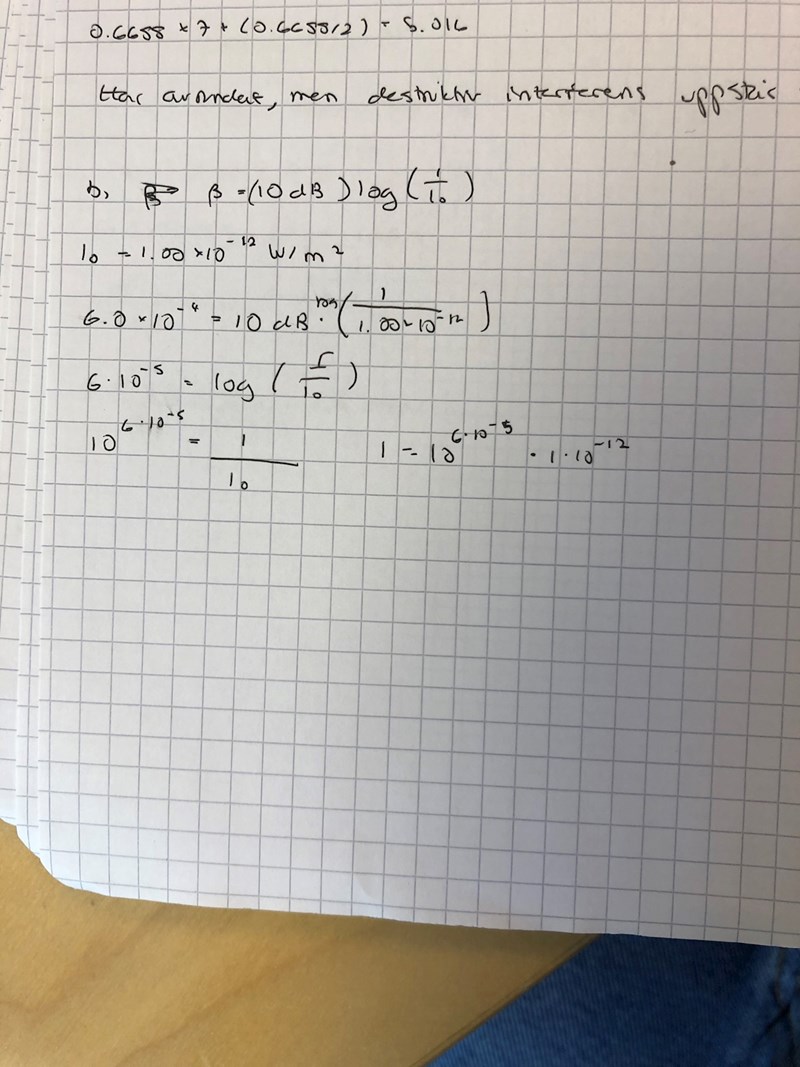 0.6658 × 7 + (0.6658/2) = 5.016
Har avrundat, men destruktiv interferens uppstår
b, β = (10 dB) log (I/I₀)
I₀ = 1.00 × 10⁻¹² W/m²
6.0 × 10⁻⁴ = 10 dB · log (I/1.00 × 10⁻¹²)
6 · 10⁻⁵ = log (I/I₀)
10^(6·10⁻⁵) = I/I₀ I = 10^(6·10⁻⁵) · 1 · 10⁻¹²